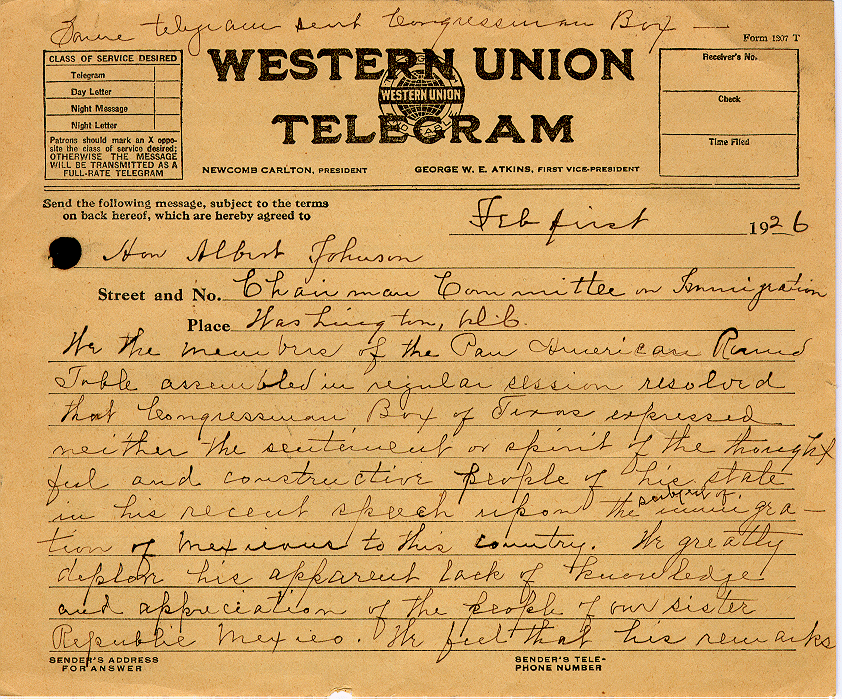 Same telegram sent Congressman Box —
Form 1207 T
CLASS OF SERVICE DESIRED
Telegram
Day Letter
Night Message
Night Letter
Patrons should mark an X oppo-
site the class of service desired;
OTHERWISE THE MESSAGE
WILL BE TRANSMITTED AS A
FULL-RATE TELEGRAM
WESTERN UNION
WESTERN UNION
TELEGRAM
NEWCOMB CARLTON, PRESIDENT
GEORGE W. E. ATKINS, FIRST VICE-PRESIDENT
Receiver's No.
Check
Time Filed
Send the following message, subject to the terms
on back hereof, which are hereby agreed to
Feb first 1926
Hon Albert Johnson
Street and No. Chairman Committee on Immigration
Place Washington, D.C.
We the members of the Pan American Round
Table assembled in regular session resolved
that Congressman Box of Texas expressed
neither the sentiment or spirit of the thought
ful and constructive people of his state
in his recent speech upon the subject of immigra—
tion of Mexicans to this country. We greatly
deplor his apparent lack of knowledge
and appreciation of the people of our sister
Republic Mexico. We feel that his remarks
SENDER'S ADDRESS
FOR ANSWER
SENDER'S TELE-
PHONE NUMBER